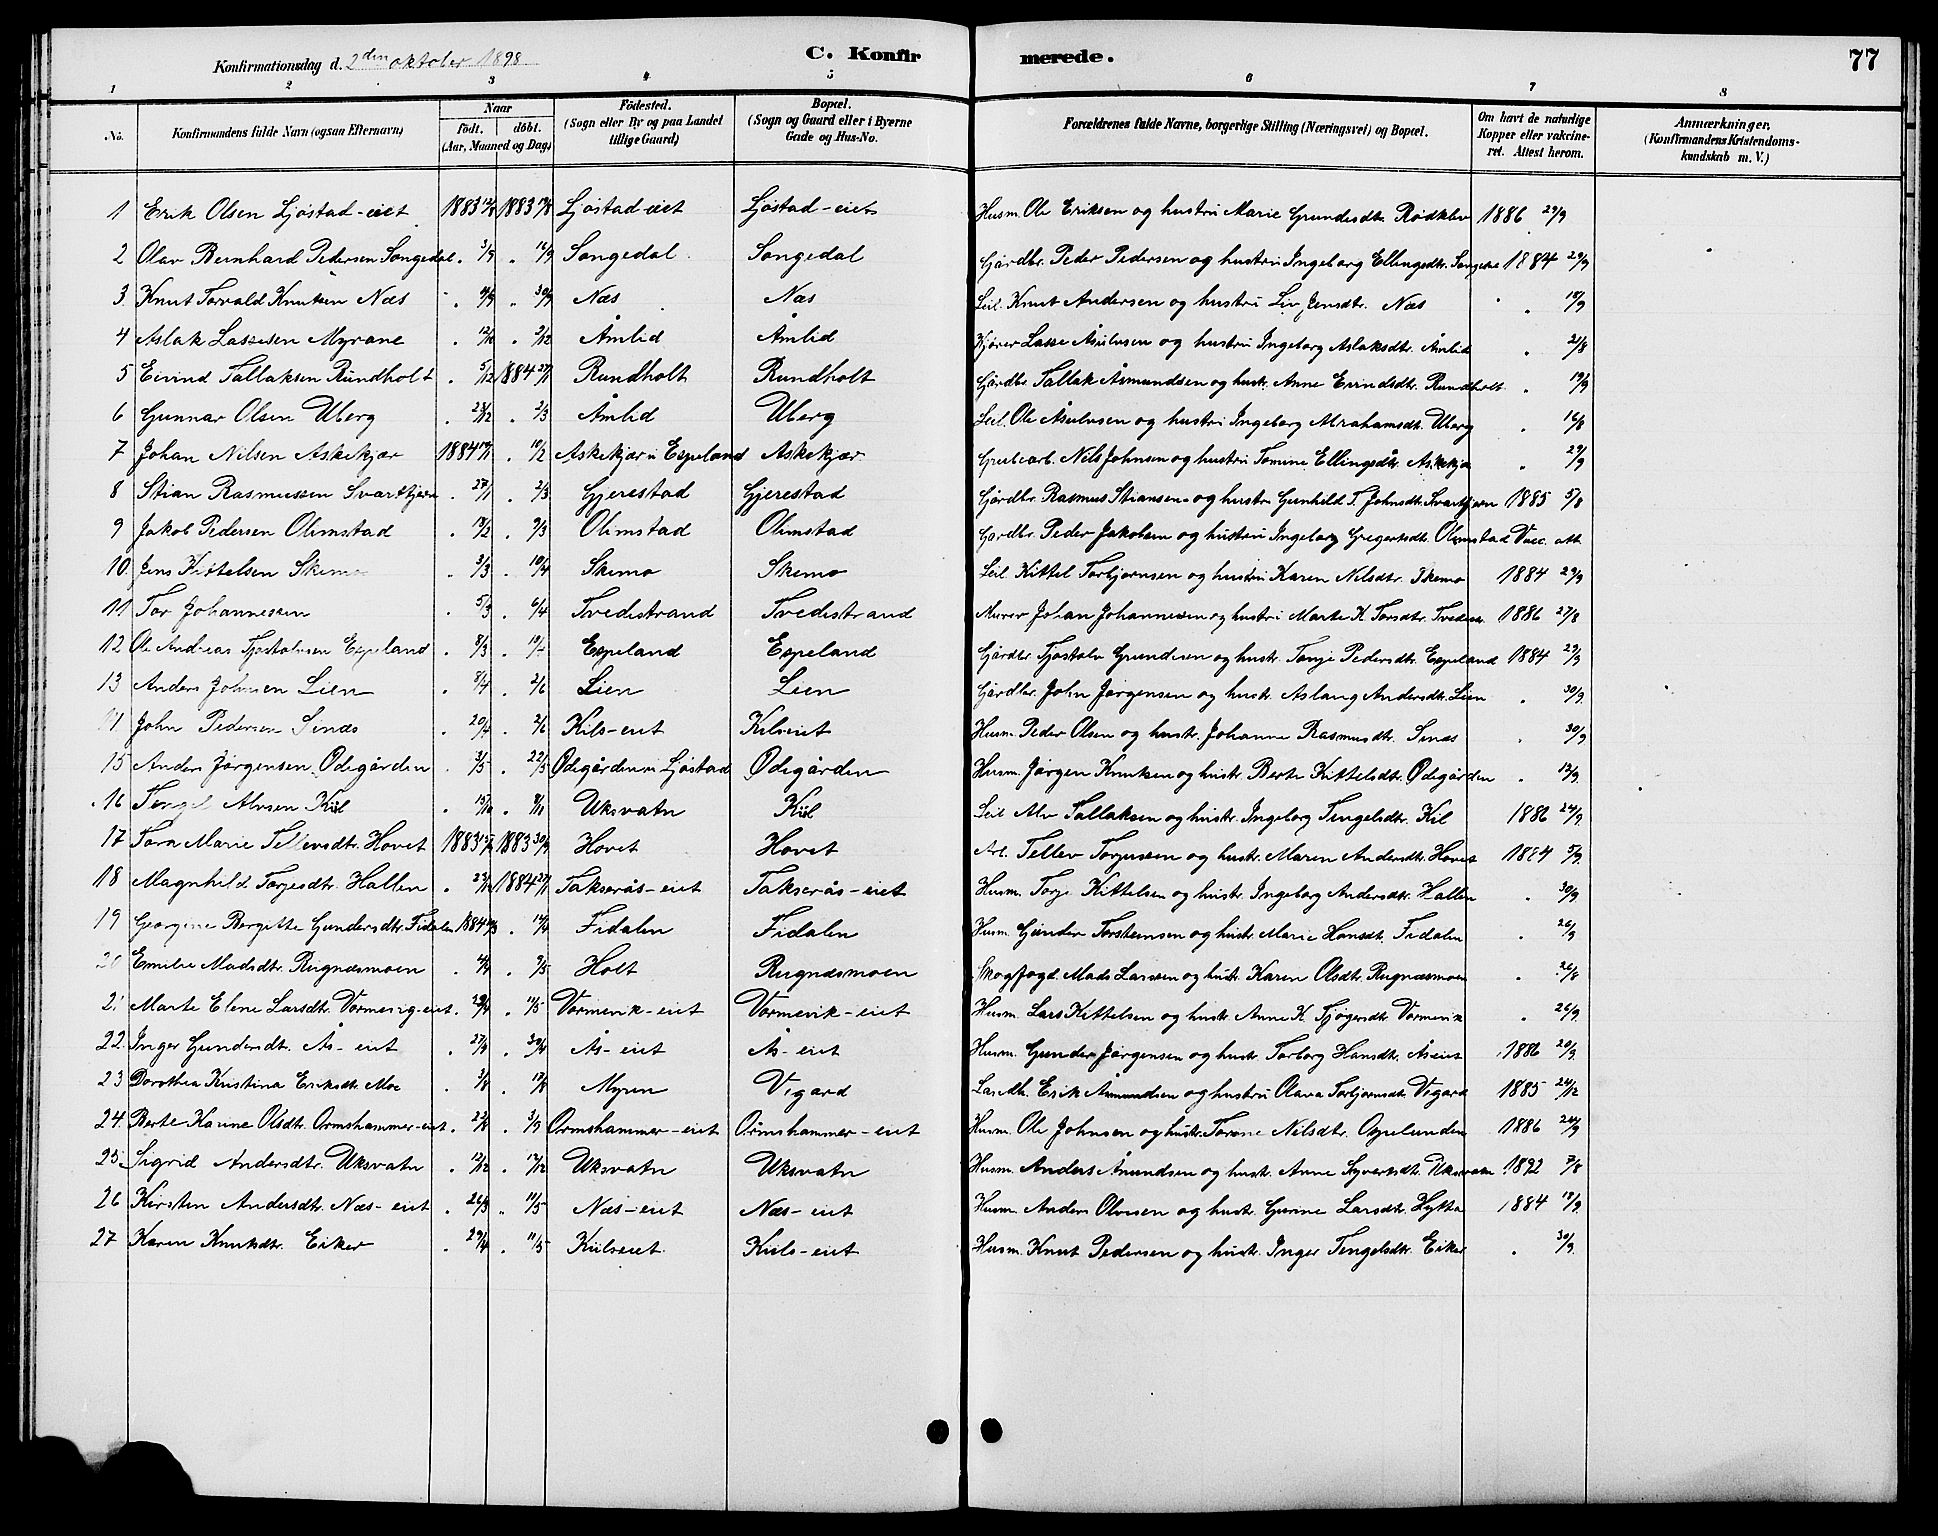 Konfirmationsdag d. 2den oktober 1898
C. Konfirmerede.
77
1 2 3 4 5 6 7 8
No. Konfirmandens fulde Navn (ogsaa Efternavn) Naar født. døbt. (Aar, Maaned og Dag) Fødested. (Sogn eller By og paa Landet tillige Gaard) Bopæl. (Sogn og Gaard eller i Byerne Gade og Hus-No. Forældrenes fulde Navne, borgerlige Stilling (Næringsvei) og Bopæl. Om havt de naturlige Kopper eller vakcineret. Attest herom. Anmærkninger. (Konfirmandens Kristendomskundskab m. V.)
1 Erik Olsen Ljøstad-eiet 1883 1883 Ljøstad-eiet Ljøstad-eiet Husm. Ole Eriksen og hustru Marie Grundesdtr. Rødklev 1886 29/9
2 Olav Bernhard Pedersen Songedal . 3/9 . 16/9 Songedal Songedal Gårdbr. Peder Pedersen og hustru Ingeborg Ellingsdtr. 1884 29/9
3. Knut Torvald Knutsen Næs . . 30/9 Næs Næs Leil. Knut Andersen og hustru Liv Jensdtr. Næs . 18/9
4 Aslak Lassesen Myrane . 12/10 . 2/12 Åmlid Åmlid Lasse Asulvsen og hustru Ingeborg Aslaksdtr. Åmlid . 21/8
5 Eivind Tallaksen Rundholt . 5/12 1884 27/1 Rundholt Rundholt Gårdbr Tallak Åsmundsen og hustr. Anne Eivindsdtr. Rundholt . 19/9
6 Gunnar Olsen Uberg . 23/12 . 2/3 Åmlid Uberg Leil. Ole Asulvsen og hustru Ingeborg Abrahamsdtr. Uberg . 16/8
7 Johan Nilsen Askekjær 1884 . 10/2 Askekjær u Espeland Askekjær Grubearb. Nils Johnsen og hustru Tomine Ellingsdtr. Askekjær . 29/9
8 Stian Rasmussen Svartkjærn . 27/1 . 2/3 Gjerestad Gjerestad Gårdbr. Rasmus Stiansen og hustru Gunhild T. Johnsdtr. Svartkjern 1885 5/8
9 Jakob Pedersen Olimstad . 13/2 . 9/3 Olimstad Olimstad Gårdbr. Peder Jakobsen og hustru Ingeborg Gregertsdtr. Olimstad Vacc. att.
10. Jens Kittelsen Skemo . 3/3 . 10/4 Skemo Skemo Leil. Kittel Torbjørnsen og hustru Karen Nilsdtr. Skemo 1884 29/9
11 Tor Johannessen . 5/3 . 6/4 Tvedestrand Tvedestrand Murer Johan Johannesen og hustru Marte K. Torsdtr. Tvedestr. 1886 27/8
12 Ole Andreas Tjøstolvsen Espeland . 8/3 . Espeland Espeland Gårdbr Tjøstolv Grundesen og hustr. Tonje Pedersdtr. Espeland 1884 29/9
13 Anders Johnsen Lien . 8/4 . 2/6 Lien Lien Gårdbr. John Jørgensen og hustr. Aslaug Andersdtr. Lien . 30/9
John Pedersen Sinæs . 20/4 . 2/6 Kils-eiet Kilseiet Husm. Peder Olsen og hustr. Johanne Rasmusdtr. Sinæs . 30/9
15 Anders Jørgensen Ødegården . 3/5 . 22/5 Ødegården u Ljøstad Ødegården Husm. Jørgen Knutsen og hustr. Berte Kittelsdtr. Ødegården . 12/9
16 Tengel Alvsen Kiil . 15/10 . Uksvatn Kiil Leil Alv Tallaksen og hustr. Ingeborg Tengelsdtr. Kil 1886 24/9
17 Torn Marie Tellevsdtr. Hovet 1883 1883 30/9 Hovet Hovet Arb. Tellev Torjussen og hustr. Maren Andersdtr. Hovet 1884 5/9
18 Magnhild Torjesdtr. Hallen . 1884 27/1 Takserås-eiet Takserås-eiet Husm. Torje Kittelsen og hustr. Ingeborg Andersdtr. Hallen . 30/9
19 Georgine Bergitte Gundersdtr. Fidalen 1884 . 14/4 Fidalen Fidalen Husm. Gunder Torstensen og hustr. Marie Hansdtr. Fidalen . 26/9
20 Emilie Madsdtr. Rugnæsmoen . 4/4 . 9/5 Holt Rugnæsmoen Skogfogd Mads Larssen og hustr. Karen Olsdtr. Rugnæsmoen . 26/8
21 Marte Elene Larsdtr. Vormevig-eiet . . 11/5 Vormevik-eiet Vormevik-eiet Husm. Lars Kittelsen og hustr. Anne K. Tjøgersdtr. Vormevik . 26/9
22. Inger Gundersdtr. Ås-eiet . . 30/4 Ås-eiet Ås-eiet Husm. Gunder Jørgensen og hustr. Torborg Hansdtr. Åseiet 1886 20/9
23 Dorothea Kristina Eriksdtr. Moe . 3/8 . 17/8 Myren Vigard Landh. Erik Åmundsen og hustru Olava Torbjørnsdtr. Vigard 1885 24/12
24. Berte Karine Olsdtr. Ormshammer-eiet . 22/8 . 3/9 Ormshammer-eiet Ormshammer-eiet Husm. Ole Johnsen og hustr. Torene Nilsdtr. Ospelunden 1886 24/9
25 Sigrid Andersdtr. Uksvatn . 12/12 . 17/12 Uksvatn Uksvatn Husm. Anders Åmundsen og hustr. Anne Syvertsdtr. Uksvatn 1892 7/8
26 Kirsten Andersdtr. Næs-eiet . 26/3 . 11/5 Næs-eiet Næs-eiet Husm. Anders Olvesen og hustr. Gurine Larsdtr. Hytta 1884 18/9
27 Karen Knutsdtr. Eiker . 29/4 . 11/5 Kiilseiet Kiils-eiet Husm. Knut Pedersen og hustr. Inger Tengelsdtr. Eiker . 30/9